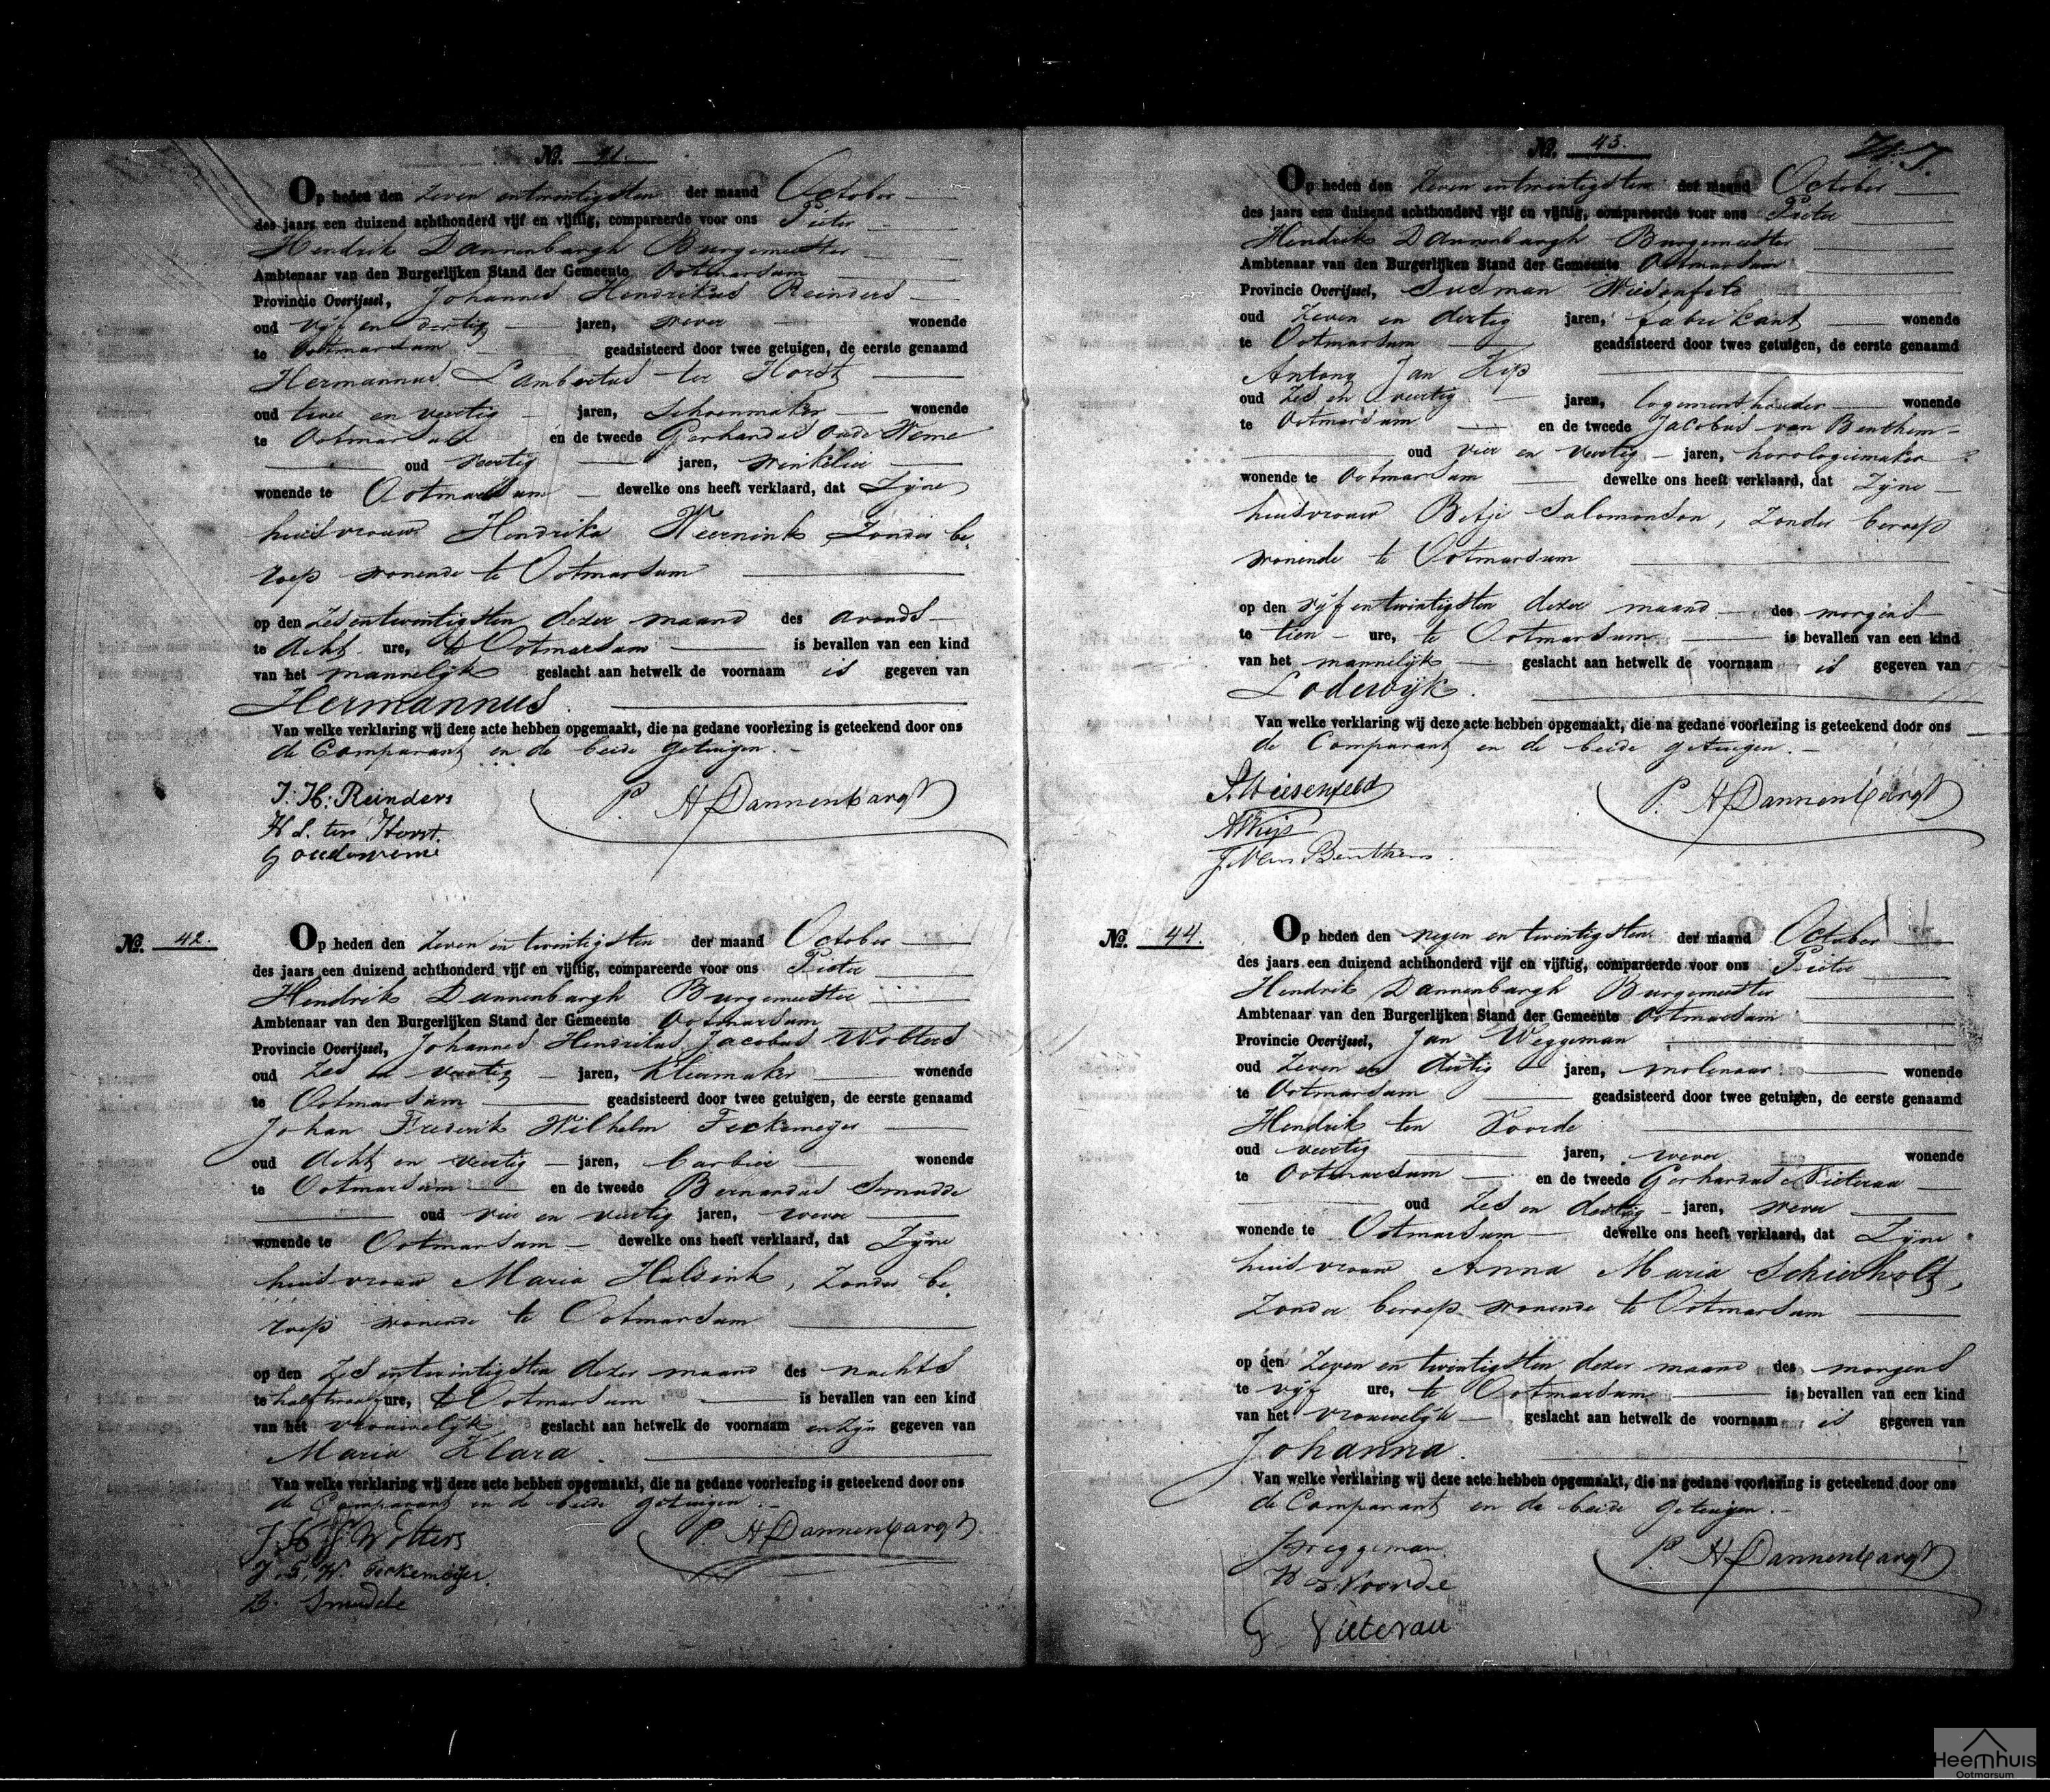 No. 41.
Op heden den zeven entwintigsten der maand October
des jaars een duizend achthonderd vijf en vijftig, compareerde voor ons Pieter
Hendrik Dannenbargh Burgemeester
Ambtenaar van den Burgerlijken Stand der Gemeente Ootmarsum
Provincie Overijssel, Johannes Hendrikus Reinders
oud vijf en dertig jaren, wever wonende
te Ootmarsum geadsisteerd door twee getuigen, de eerste genaamd
Hermannus Lambertus ter Horst
oud twee en veertig jaren, Schoenmaker wonende
te Ootmarsum en de tweede Gerhardus oude Weme
oud veertig jaren, winkelier
wonende te Ootmarsum dewelke ons heeft verklaard, dat Zijne
huisvrouw Hendrika Weernink, Zonder be
roep wonende te Ootmarsum
op den Zes entwintigsten dezer maand des avonds
te Acht ure, te Ootmarsum is bevallen van een kind
van het mannelijk geslacht aan hetwelk de voornaam is gegeven van
Hermannus.
Van welke verklaring wij deze acte hebben opgemaakt, die na gedane voorlezing is geteekend door ons
de Comparant en de beide getuigen.
J: H: Reinders P. H Dannenbargh
H L. ter Horst
G oudeweme
No. 42.
Op heden den zeven en twintigsten der maand October
des jaars een duizend achthonderd vijf en vijftig, compareerde voor ons Pieter
Hendrik Dannenbargh Burgemeester
Ambtenaar van den Burgerlijken Stand der Gemeente Ootmarsum
Provincie Overijssel, Johannes Hendrikus Jacobus Wolters
oud Zes en veertig jaren, Kleermaker wonende
te Ootmarsum geadsisteerd door twee getuigen, de eerste genaamd
Johan Frederik Wilhelm Feckemeijer
oud Acht en veertig jaren, barbier wonende
te Ootmarsum en de tweede Bernardus Smudde
oud vier en veertig jaren, wever
wonende te Ootmarsum dewelke ons heeft verklaard, dat Zijne
huisvrouw Maria Hulsink, Zonder be
roep wonende te Ootmarsum
op den Zes entwintigsten dezer maand des nachts
te half twaalf ure, te Ootmarsum is bevallen van een kind
van het vrouwelijk geslacht aan hetwelk de voornaam en zijn gegeven van
Maria Klara.
Van welke verklaring wij deze acte hebben opgemaakt, die na gedane voorlezing is geteekend door ons
de Comparant en de beide getuigen.
J. H J Wolters P. H Dannenbargh
J. F. W. Feckemeijer.
B. Smudde
No. 43.
Op heden den Zeven entwintigsten der maand October
des jaars een duizend achthonderd vijf en vijftig, compareerde voor ons Pieter
Hendrik Dannenbargh Burgemeester
Ambtenaar van den Burgerlijken Stand der Gemeente Ootmarsum
Provincie Overijssel, Susman Wiesenfeld
oud Zeven en dertig jaren, fabrikant wonende
te Ootmarsum geadsisteerd door twee getuigen, de eerste genaamd
Antony Jan Kip
oud Zes en veertig jaren, logementhouder wonende
te Ootmarsum en de tweede Jacobus van Benthem
oud vier en veertig jaren, horologiemaker
wonende te Ootmarsum dewelke ons heeft verklaard, dat Zijne
huisvrouw Betje Salomonson, Zonder beroep
wonende te Ootmarsum
op den vijf entwintigsten dezer maand des morgens
te tien ure, te Ootmarsum is bevallen van een kind
van het mannelijk geslacht aan hetwelk de voornaam is gegeven van
Lodewijk.
Van welke verklaring wij deze acte hebben opgemaakt, die na gedane voorlezing is geteekend door ons
de Comparant en de beide getuigen.
S. Wiesenfeld P. H Dannenbargh
J. Van Benthem
No. 44.
Op heden den negen en twintigsten der maand October
des jaars een duizend achthonderd vijf en vijftig, compareerde voor ons Pieter
Hendrik Dannenbargh Burgemeester
Ambtenaar van den Burgerlijken Stand der Gemeente Ootmarsum
Provincie Overijssel, Jan Weggeman
oud Zeven en dertig jaren, molenaar wonende
te Ootmarsum geadsisteerd door twee getuigen, de eerste genaamd
Hendrik ten Voorde
oud veertig jaren, wever wonende
te Ootmarsum en de tweede Gerhardus Vieterau
oud Zes en dertig jaren, wever
wonende te Ootmarsum dewelke ons heeft verklaard, dat Zijne
huisvrouw Anna Maria Schierholt,
Zonder beroep wonende te Ootmarsum
op den Zeven en twintigsten dezer maand des morgens
te vijf ure, te Ootmarsum is bevallen van een kind
van het vrouwelijk geslacht aan hetwelk de voornaam is gegeven van
Johanna.
Van welke verklaring wij deze acte hebben opgemaakt, die na gedane voorlezing is geteekend door ons
de Comparant en de beide getuigen.
J weggeman P. H Dannenbargh
H t Voorde
G Vieterau
Heemhuis
Ootmarsum